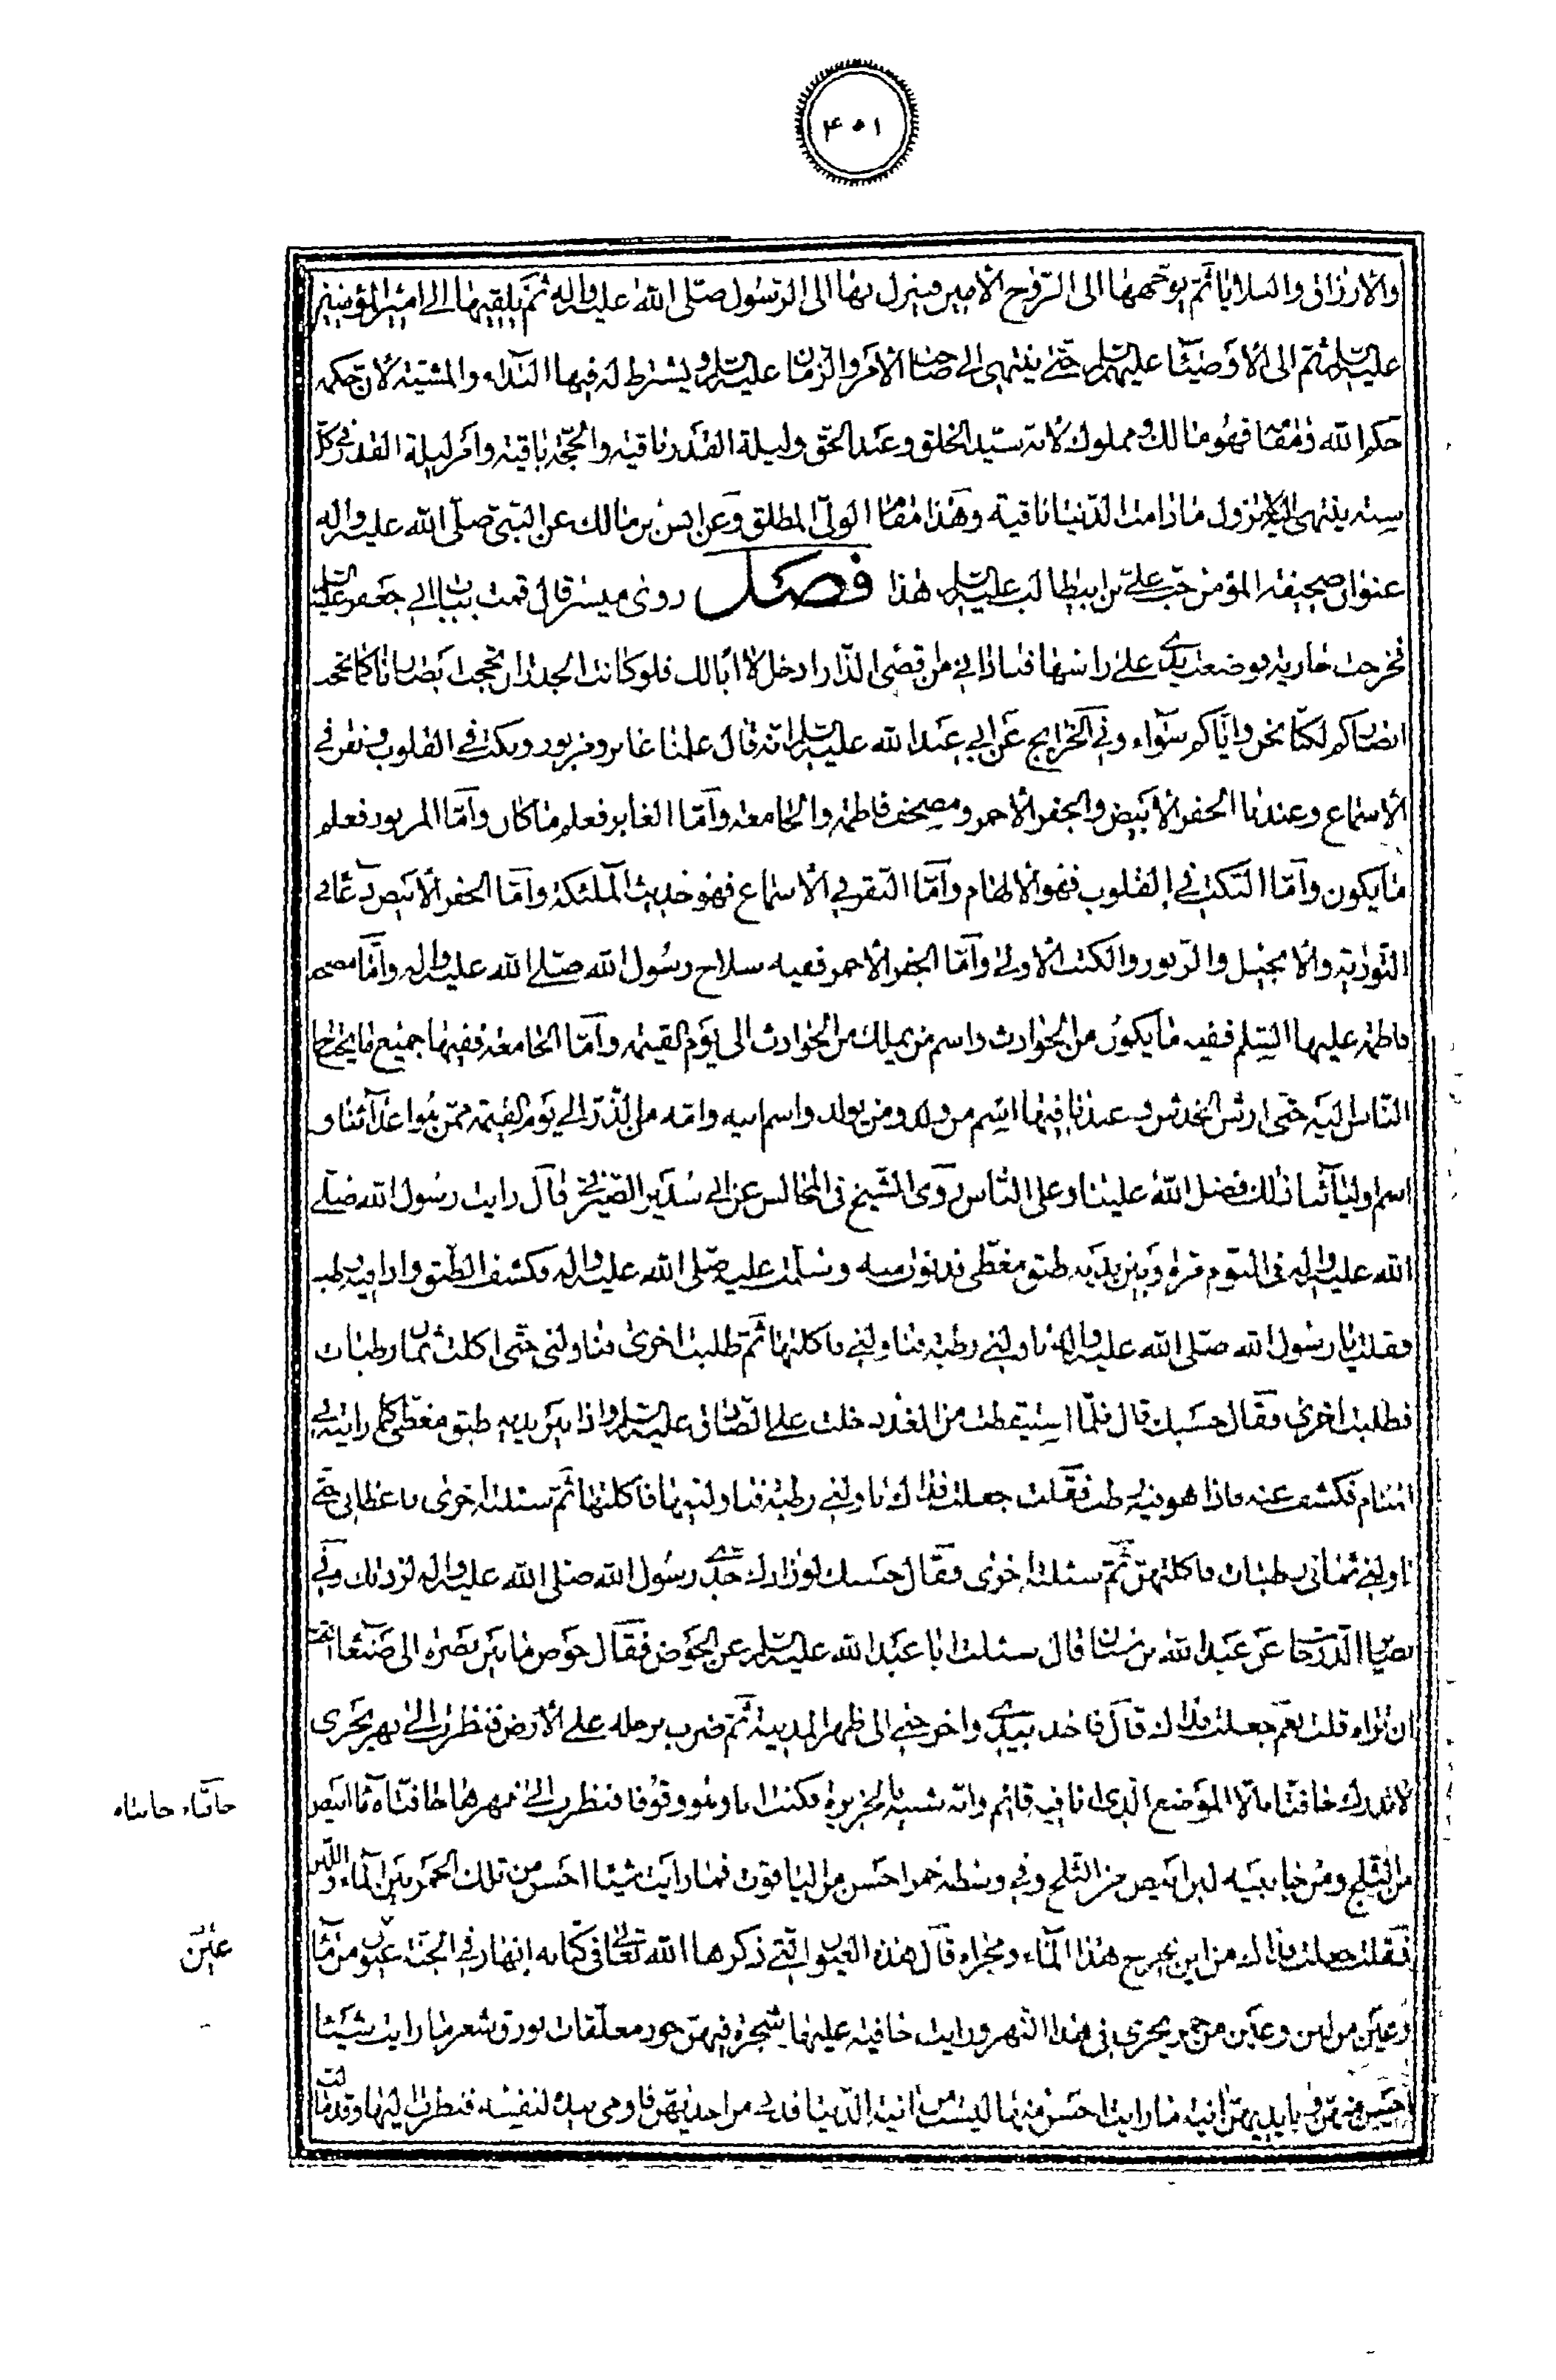 ۴۰۱
والارزاق والبلايا ثم يوجهها الى الروح الامين فينزل بها الى الرسول صلى الله عليه واله ثم يلقيها الى امير المؤمنين
عليه السلم ثم الى الاوصياء عليهم السلم حتى ينتهى الى صاحب الامر والزمان عليه السلم ويشترط له فيها البداء والمشية لان حكمه
حكم الله ومقامه فهو مالك ومملوك لانه سيد الخلق وعبد الحق وليلة القدر باقية والحجة باقية وامر ليلة القدر في كل
سنة ينتهى اليه بنزول ما دامت الدنيا باقية وهذا مقام الولي المطلق وعن انس بن مالك عن النبي صلى الله عليه واله
عنوان صحيفة المؤمن حب علي بن ابيطالب عليه السلم هذا فصل روى ميسر قال قمت بباب ابي جعفر عليه السلم
فخرجت جارية فوضعت يدى على راسها فنادانى من قصى الدار ادخل لا ابا لك فلو كانت الجدران تحجب بصارنا كما تحجب
ابصاركم لكنا نحن واياكم سواء وفي الخرايج عن ابي عبد الله عليه السلم انه قال علمنا غابر ومزبور ونكت في القلوب ونقر في
الاسماع وعندنا الجفر الابيض والجفر الاحمر ومصحف فاطمة والجامعة واما الغابر فعلم ما كان واما المزبور فعلم
ما يكون واما النكت في القلوب فهو الالهام واما النقر في الاسماع فهو حديث الملئكة واما الجفر الابيض
التورية والانجيل والزبور والكتب الاولى واما الجفر الاحمر ففيه سلاح رسول الله صلى الله عليه واله واما مصحف
فاطمة عليها السلم ففيه ما يكون من الحوادث واسم من يملك من الحوادث الى يوم القيمة واما الجامعة ففيها جميع ما يحتاج
الناس اليه حتى ارش الخدش وعندنا فيها اسم من ولد ومن يولد واسم ابيه وامه من الذر الى يوم القيمة ممن هو اعدائنا و
اسم اوليائنا ذلك فضل الله علينا وعلى الناس روى الشيخ في المجالس عن ابي سدير الصيرفي قال رايت رسول الله صلى
الله عليه واله في النوم وبين يديه طبق مغطى فدنوت منه وسلمت عليه صلى الله عليه واله فكشف الطبق واذا فيه رطب
فقلت يا رسول الله صلى الله عليه واله ناولني رطبة فناولني فاكلتها ثم طلبت اخرى فناولني حتى اكلت ثمان رطبات
فطلبت اخرى فقال حسبك قال فلما استيقظت من الغد دخلت على الصادق عليه السلم واذا بين يديه طبق مغطى كما رايته في
المنام فكشف عنه فاذا هو فيه رطب فقلت جعلت فداك ناولني رطبة فناولنيها فاكلتها ثم سئلته اخرى فاعطاني حتى
ناولني ثمانى رطبات فاكلتهن ثم سئلته اخرى فقال حسبك لو زادك جدي رسول الله صلى الله عليه واله لزدناك وفي
بصائر الدرجات عن عبد الله بن سنان قال سئلت ابا عبد الله عليه السلم عن الحوض فقال حوض ما بين بصره الى صنعا اتحب
ان تراه قلت نعم جعلت فداك قال فاخذ بيدى واخرجني الى ظهر المدينة ثم ضرب برجله على الارض فنظرت الى نهر يجرى
لا تدرك حافتاه الا الموضع الذي انا فيه قائم وانه شبيه بالجزيرة فكنت انا وهو وقوفا فنظرت الى نهر هنا حافتاه ماء ابيض
من الثلج ومن جانبيه لبن ابيض من الثلج وفي وسطه خمر احسن من الياقوت فما رايت شيئا احسن من تلك الخمر بين الماء واللبن
فقلت جعلت فداك من اين يخرج هذا الماء ومجراه قال هذه العيون التي ذكرها الله تعالى في كتابه انهار في الجنة عيون من ماء
وعين من لبن وعين من خمر يجرى في هذا النهر ورايت حافتيه عليهما شجرة فيهن حور معلقات بورق شعر ما رايت شيئا
احسن منهن وبايديهن انية ما رايت احسن منها ليست من انية الدنيا فدنى من احديهن فاومى بيده لتفسه فنظرت اليها وقد مالت
حافتاه جانباه
عين